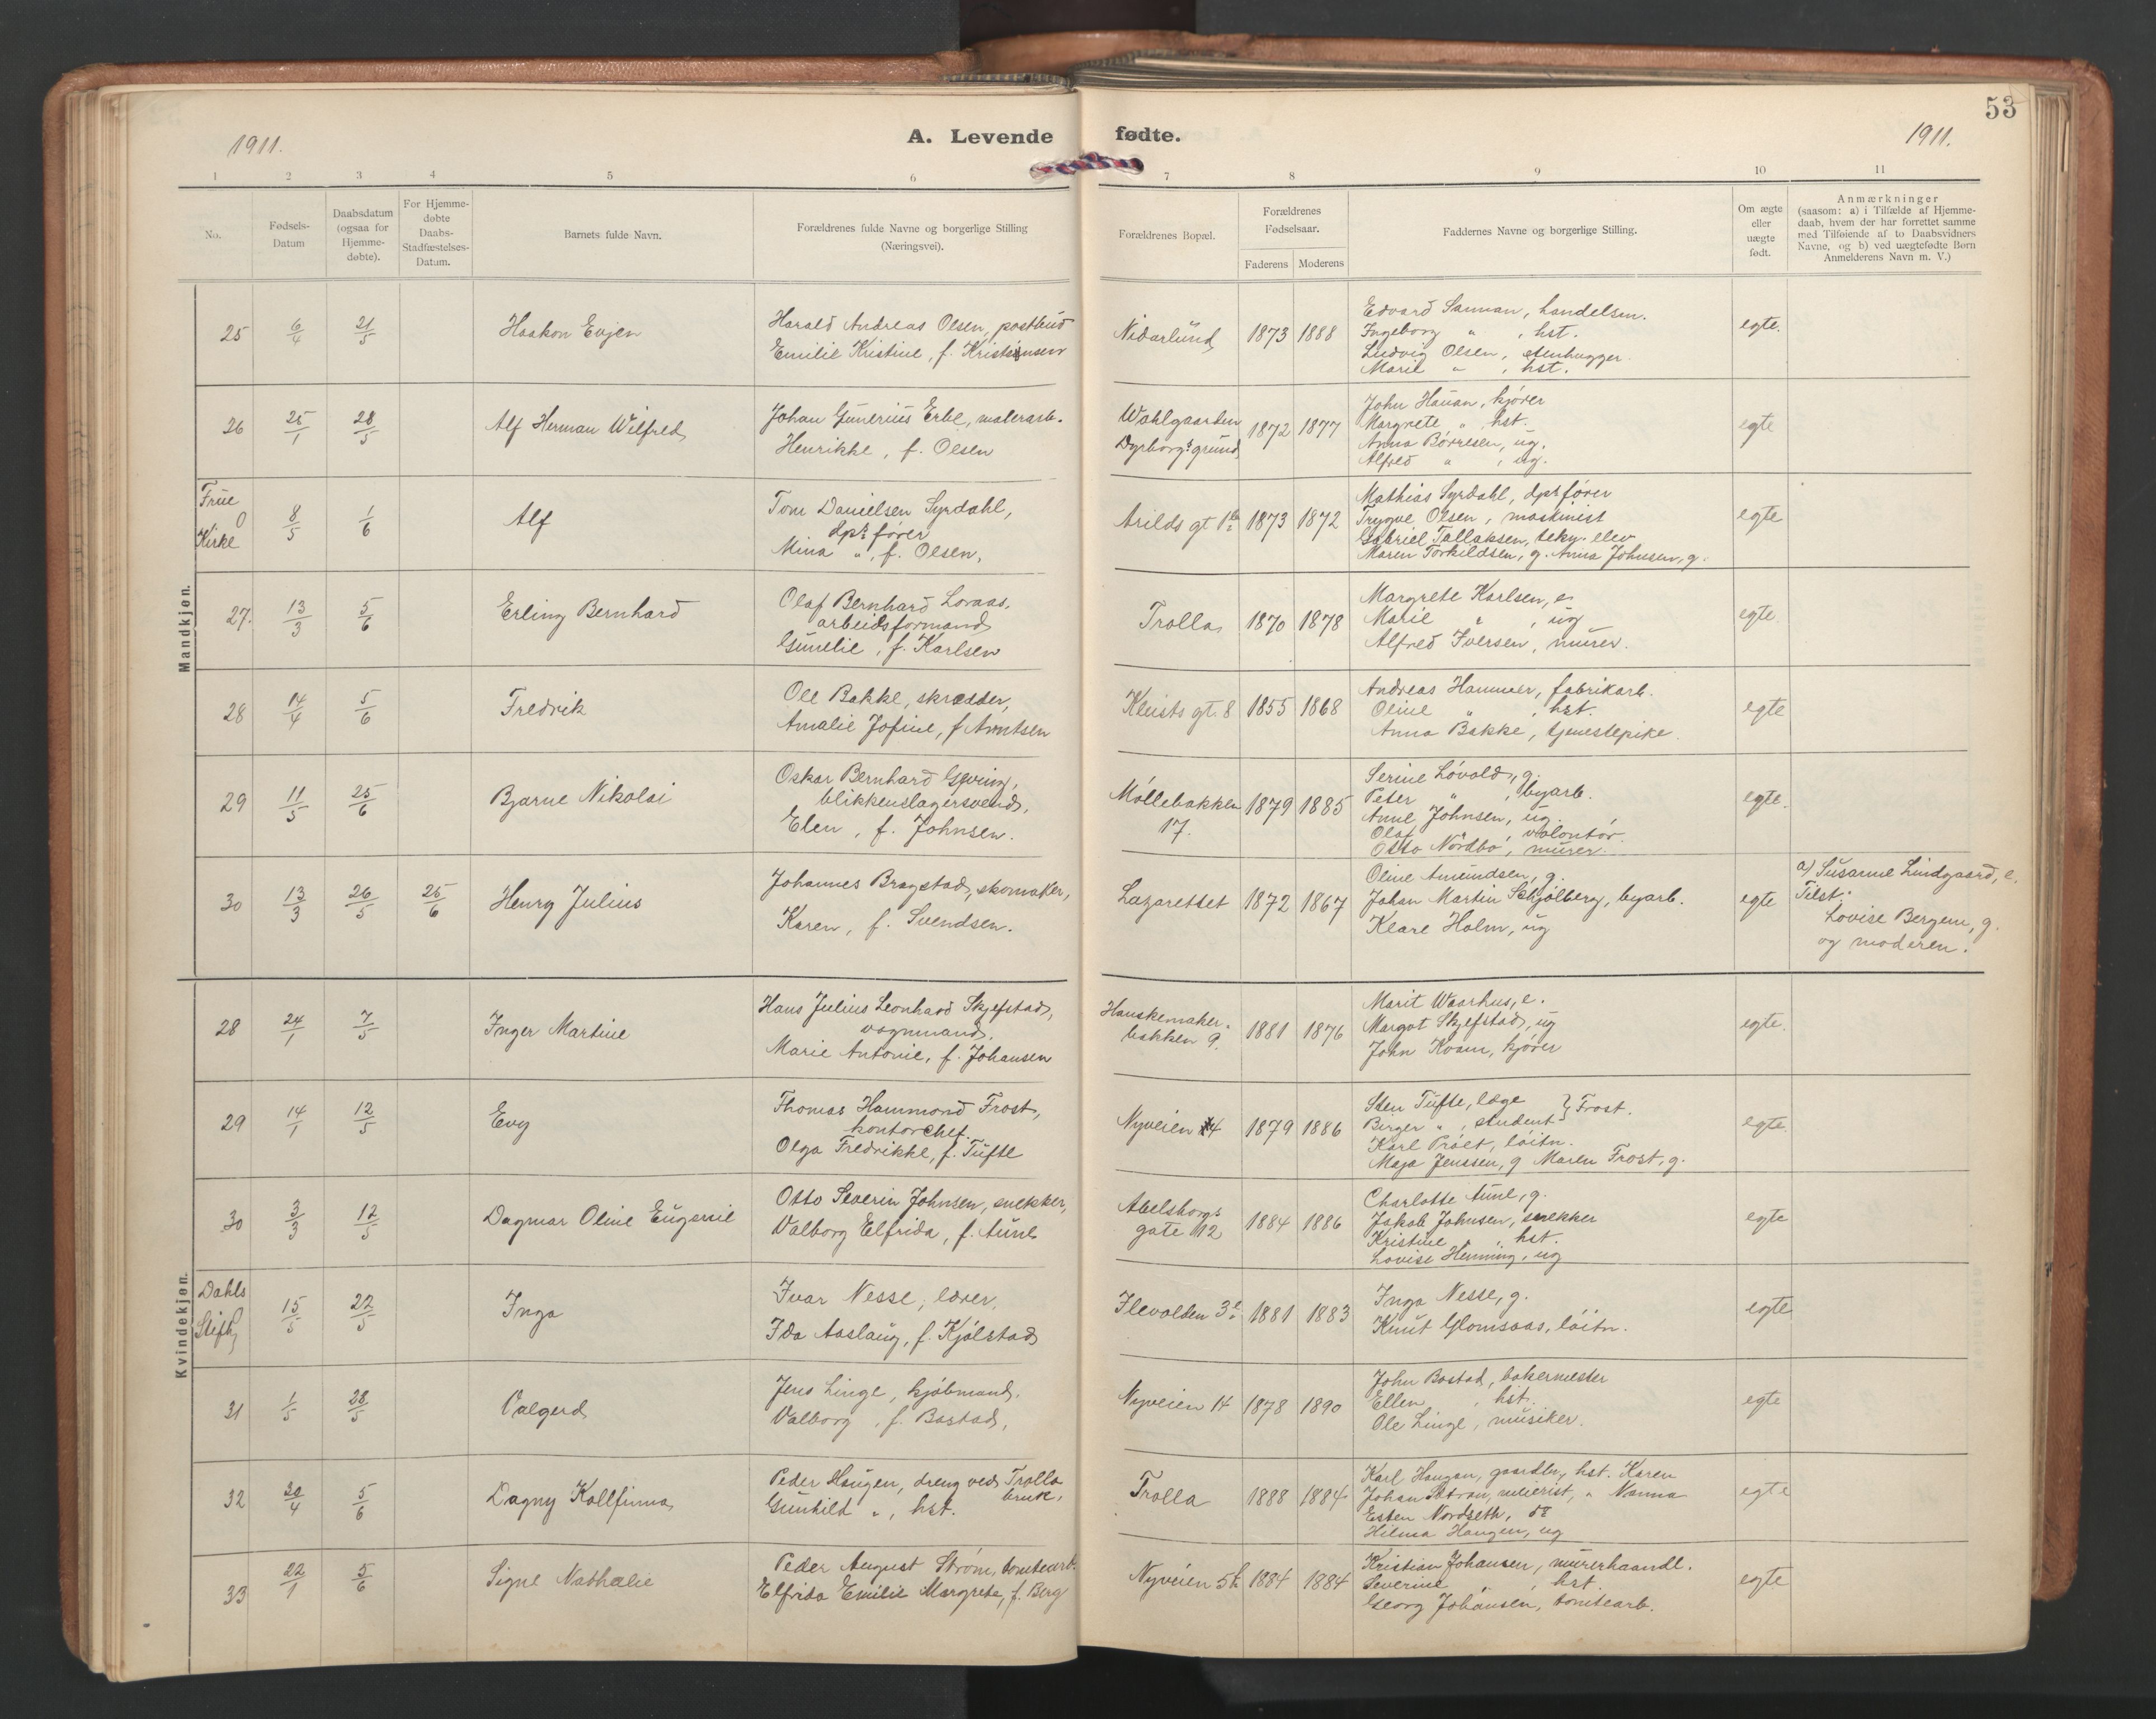 53
1911.
A. Levende fødte.
1911.
1 2 3 4 5 6 7 8 9 10 11
No.
Fødsels-
Datum
Daabsdatum
(ogsaa for
Hjemme-
døbte).
For Hjemme-
døbte
Daabs-
Stadfæstelses-
Datum.
Barnets fulde Navn.
Forældrenes fulde Navne og borgerlige Stilling
(Næringsvei).
Forældrenes Bopæl.
Forældrenes
Fødselsaar.
Faderens Moderens
Faddernes Navne og borgerlige Stilling.
Om ægte
eller
uægte
født.
Anmærkninger
(saasom: a) i Tilfælde af Hjemme-
daab, hvem der har forrettet samme
med Tilføiende af to Daabsvidners
Navne, og b) ved uægtefødte Børn
Anmelderens Navn m. V.)
Mandkjøn.
25 6/4 21/5 Haakon Evjen
Harald Andreas Olsen, postbud
Emilie Kristine, f. Kristiansen
Nidarlund 1873 1888
Edvard Sannan, handelsm.
Ingeborg " , hst.
Ludvig Olsen, stenhugger.
Marie " , hst.
egte.
26 25/1 28/5 Alf Herman Wilfred
Johan Gunerius Erbe, malerarb.
Henrikke, f. Olsen
Wahlgaarden
Dyrborgs grund 1872 1877
John Hauan, kjører
Margrete " hst.
Anna Børresen, ug.
Alfred " , ug.
egte
Frue
Kirke
8/5 1/6 Alf
Tom Danielsen Syrdahl,
dpsfører
Mina ", f. Olsen,
Arilds gt. 1 1873 1872
Mathias Syrdahl, dpsfører
Trygve Olsen, maskinist
Gabriel Tallaksen, tekn. elev
Maren Torkildsen, g. Anna Johnsen, g.
egte
27. 13/3 5/6 Erling Bernhard
Olaf Bernhard Loraas,
arbeidsformand
Gunelie, f. Karlsen
Trolla 1870 1878
Margrete Karlsen, e.
Marie " , ug
Alfred Iversen, murer.
egte
28 14/4 5/6 Fredrik
Ole Bakke, skrædder,
Amalie Jofine, f Arntsen
Kleists gt. 8 1855 1868
Andreas Hammer, fabrikarb.
Oline " , hst.
Anna Bakke, tjenestepike.
egte
29 11/5 25/6 Bjarne Nikolai
Oskar Bernhard Gjeving,
blikkenslagersvend,
Elen, f. Johnsen.
Møllebakken
17. 1879 1885
Serine Løvold, g.
Peter " , byarb.
Anne Johnsen, ug.
Olaf " , volontør
Otto Nordbø, murer.
egte.
30 13/3 26/5 25/6 Henry Julius
Johannes Bragstad, skomaker,
Karen, f. Svendsen.
Lazarettet 1872 1867
Oline Amundsen, g.
Johan Martin Schjølberg, byarb.
Klare Holm, ug
egte
a) Susanne Lindgaard, e.
Tilst:
Lovise Bergem, g.
og moderen.
Kvindekjøn.
28 24/1 7/5 Inger Martine
Hans Julius Leonhard Skjefstad,
vognmand,
Marie Antonie, f. Johansen
Hanskemaker-
bakken 9. 1881 1876
Marit Waarhus, e.
Margot Skjefstad, ug
John Kvam, kjører
egte.
29 14/1 12/5 Evy
Thomas Hammond Frost,
kontorchef.
Olga Fredrikke, f. Tufte
Nyveien 4 1879 1886
Sten Tufte, læge } Frost.
Birger " , student
Karl Prøet, løitn.
Maja Jenssen, g Maren Frost, g.
egte.
30 3/3 12/5 Dagmar Oline Eugenie
Otto Severin Johnsen, snekker,
Valborg Elfrida, f. Aune
Abelsborgs
gate 12 1884 1886
Charlotte Aune, g.
Jakob Johnsen, snekker
Kristine " , hst.
Lovise Henning, ug
egte
Dahls
Stift
15/5 22/5 Inga
Ivar Nesse, lærer,
Ida Aaslaug, f. Kjølstad
Ilevolden 3 1881 1883
Inga Nesse, g.
Knut Glomsaas, løitn.
egte
31 1/5 28/5 Valgerd
Jens Linge, kjøbmand,
Valborg, f. Bostad,
Nyveien 14 1878 1890
John Bostad, bakermester
Ellen , hst.
Ole Linge, musiker.
egte
32 30/4 5/6 Dagny Kollfinna
Peder Haugen, dreng ved Trolla
bruk,
Gunhild ", hst.
Trolla 1888 1884
Karl Haugan, gaardbr, hst. Karen
Johan Sætran, meierist, " Nanna
Esten Nordseth, do
Hilma Haugen, ug
egte
33 22/1 5/6 Signe Nathalie
Peder August Strøm, tomtearb.
Elfrida Emilie Margrete, f. Berg
Nyveien 5 1884 1884
Kristian Johansen, murerhaandl.
Severine " , hst.
Georg Johansen, tomtearb.
egte